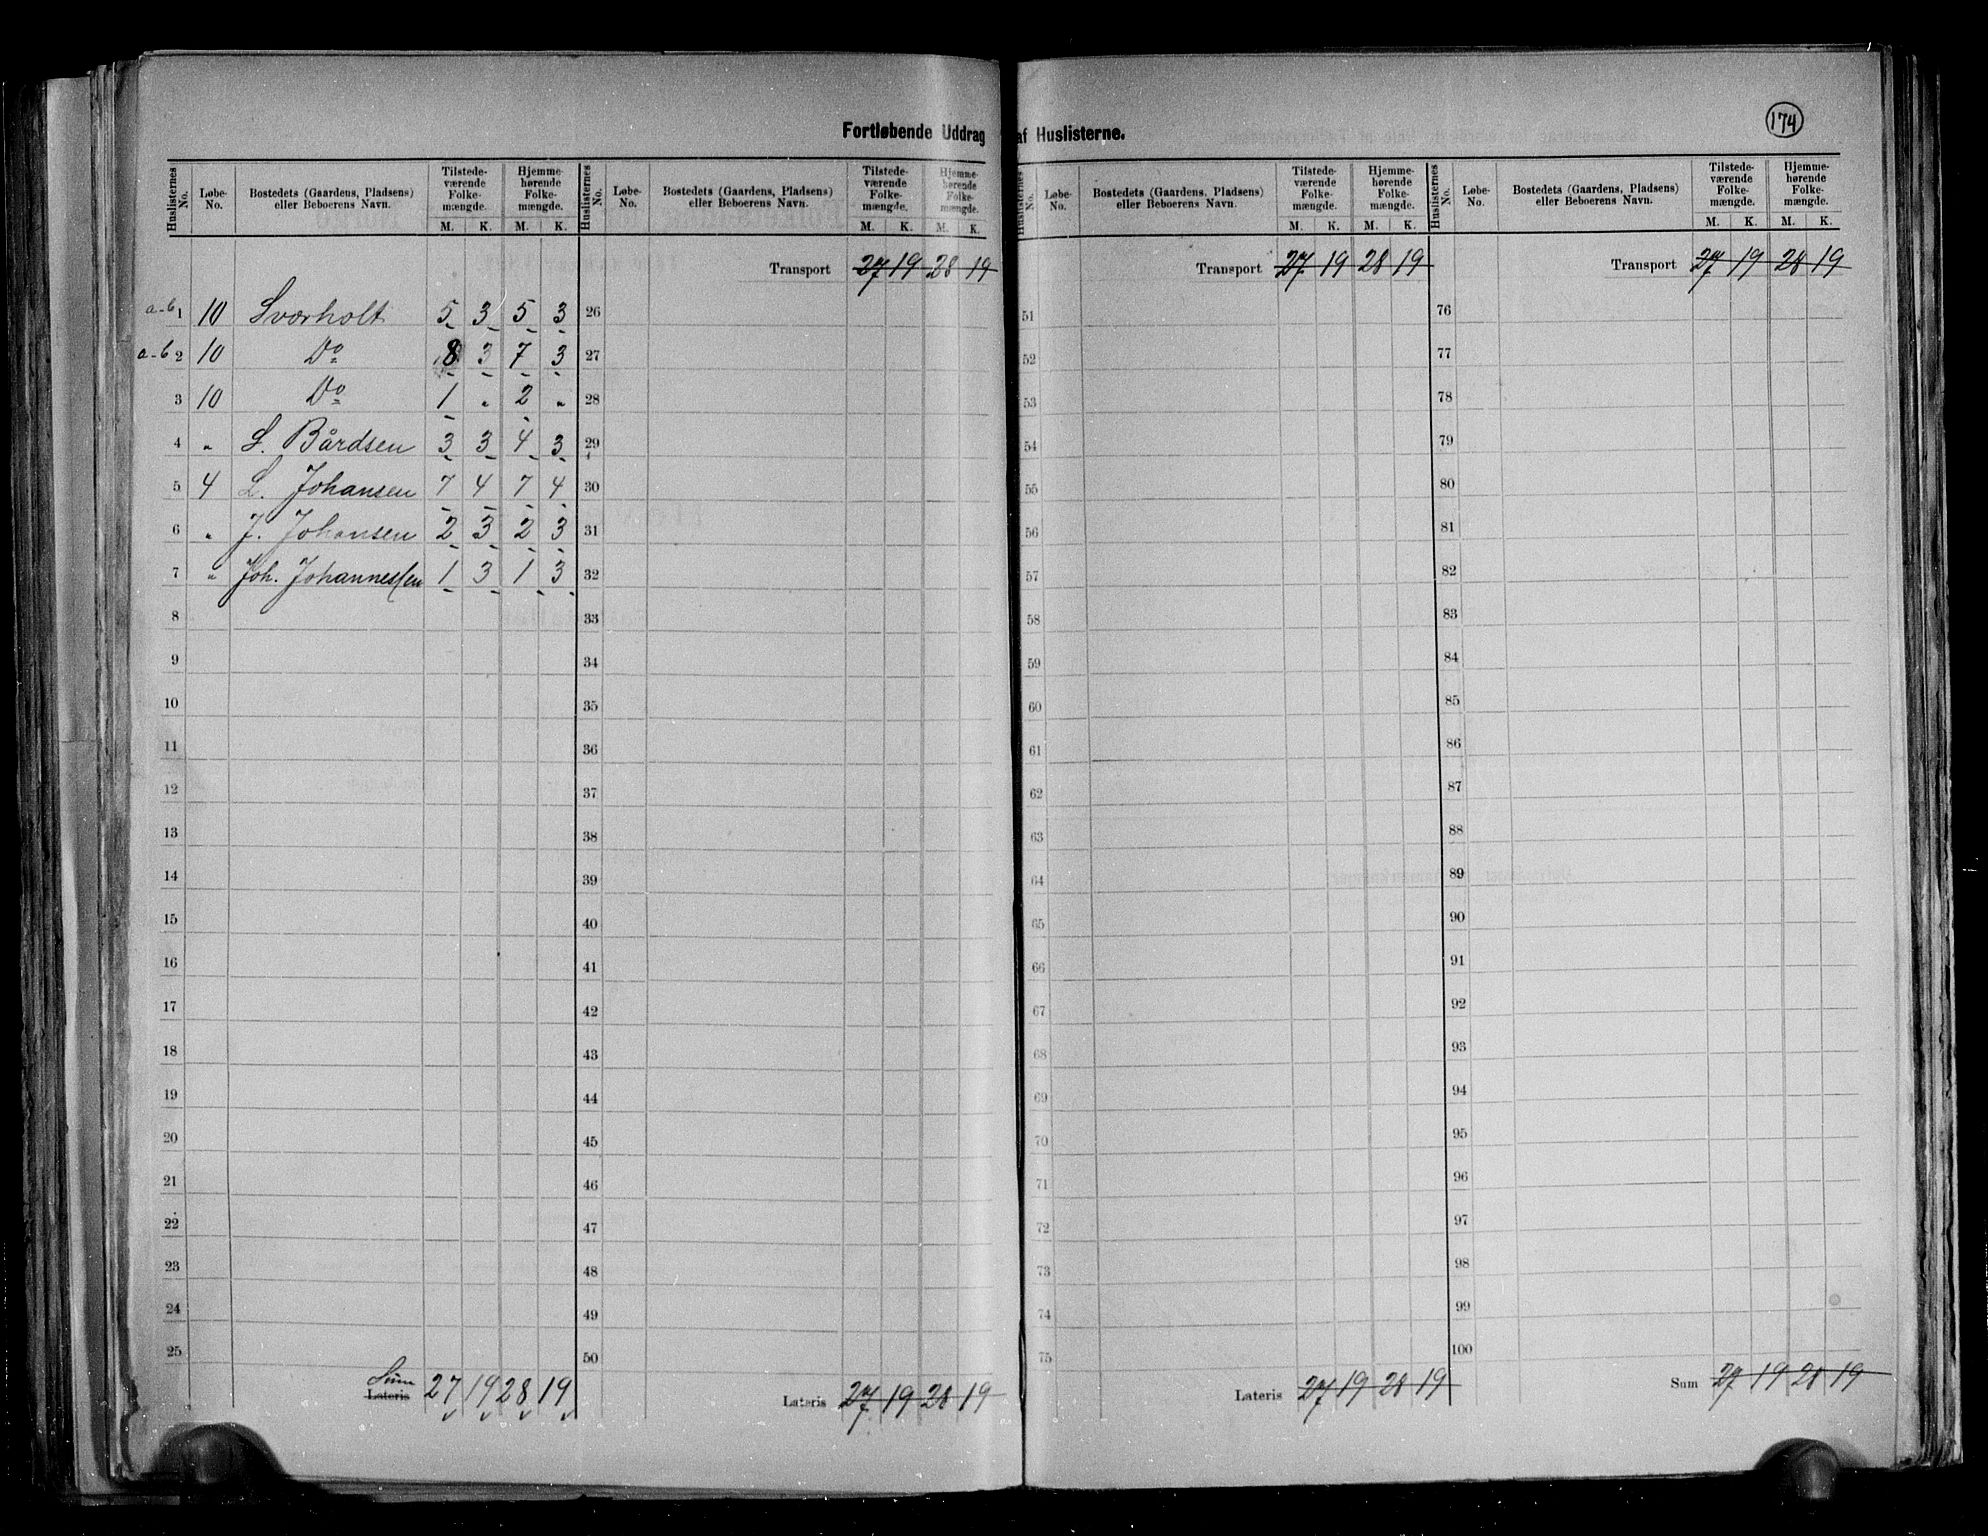 174
Fortløbende Uddrag af Huslisterne.
Huslisternes No. Løbe-No. Bostedets (Gaardens, Pladsens) eller Beboerens Navn. Tilstedeværende Folkemængde. M. K. Hjemmehørende Folkemængde. M. K.
Huslisternes No. Løbe-No. Bostedets (Gaardens, Pladsens) eller Beboerens Navn. Tilstedeværende Folkemængde. M. K. Hjemmehørende Folkemængde. M. K.
Huslisternes No. Løbe-No. Bostedets (Gaardens, Pladsens) eller Beboerens Navn. Tilstedeværende Folkemængde. M. K. Hjemmehørende Folkemængde. M. K.
Huslisternes No. Løbe-No. Bostedets (Gaardens, Pladsens) eller Beboerens Navn. Tilstedeværende Folkemængde. M. K. Hjemmehørende Folkemængde. M. K.
a-b 1 10 Sværholt 5 3 5 3
a-b 2 10 Do 8 3 7 3
3 10 Do 1 " 2 "
4 " S. Bårdsen 3 3 4 3
5 4 L. Johansen 7 4 7 4
6 " J. Johansen 2 3 2 3
7 " Joh. Johannessen 1 3 1 3
8
9
10
11
12
13
14
15
16
17
18
19
20
21
22
23
24
25
Sum Lateris 27 19 28 19
Transport 27 19 28 19
26
27
28
29
30
31
32
33
34
35
36
37
38
39
40
41
42
43
44
45
46
47
48
49
50
Lateris 27 19 28 19
Transport 27 19 28 19
51
52
53
54
55
56
57
58
59
60
61
62
63
64
65
66
67
68
69
70
71
72
73
74
75
Lateris 27 19 28 19
Transport 27 19 28 19
76
77
78
79
80
81
82
83
84
85
86
87
88
89
90
91
92
93
94
95
96
97
98
99
100
Sum 27 19 28 19